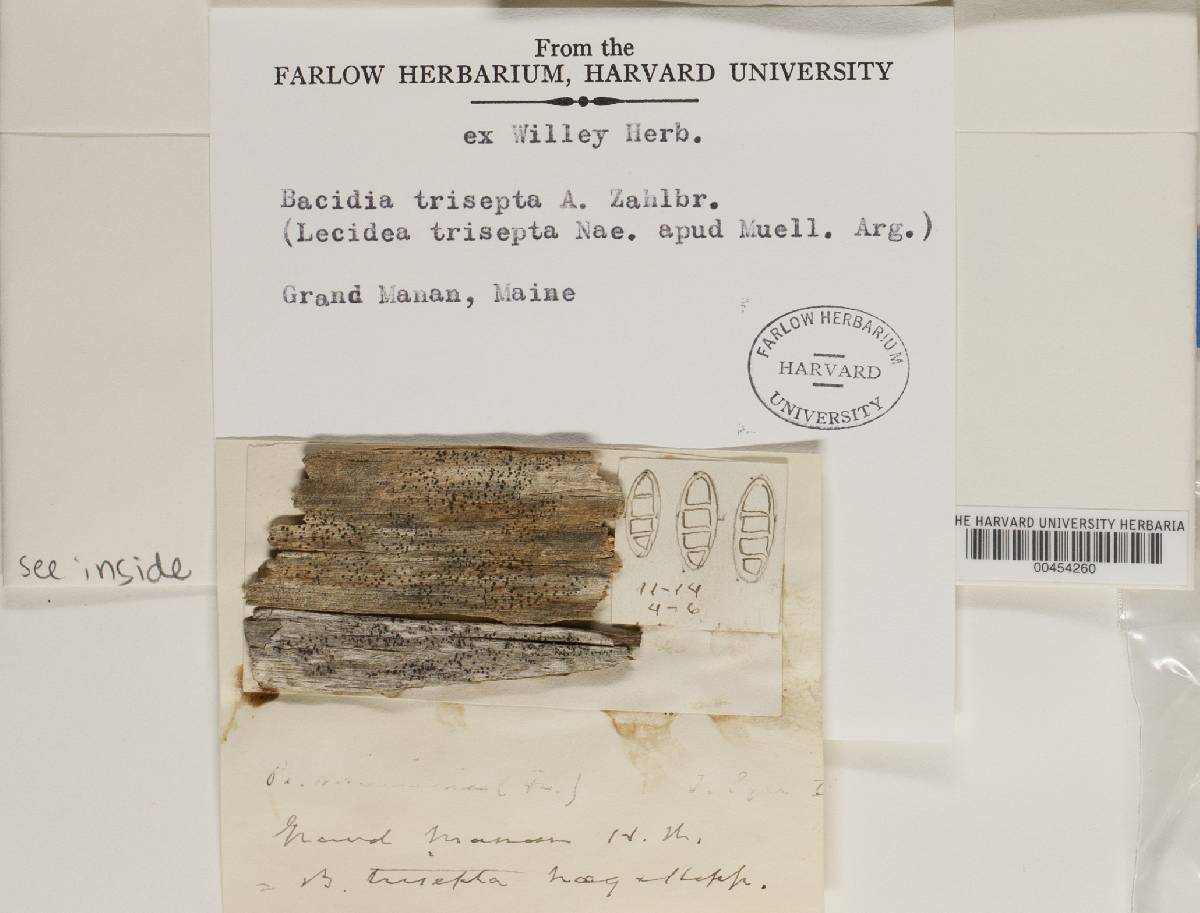 From the
FARLOW HERBARIUM, HARVARD UNIVERSITY
ex Willey Herb.
Bacidia trisepta A. Zahlbr.
(Lecidea trisepta Nae. apud Muell. Arg.)
Grand Manan, Maine
FARLOW HERBARIUM
HARVARD
UNIVERSITY
see inside
HE HARVARD UNIVERSITY HERBARIA
00454260
11-14
4-6
Grand Manan
= B. trisepta